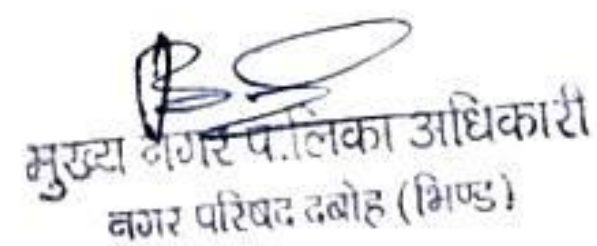 मुख्य नगर पालिका अधिकारी
नगर परिषद दबोह (भिण्ड)